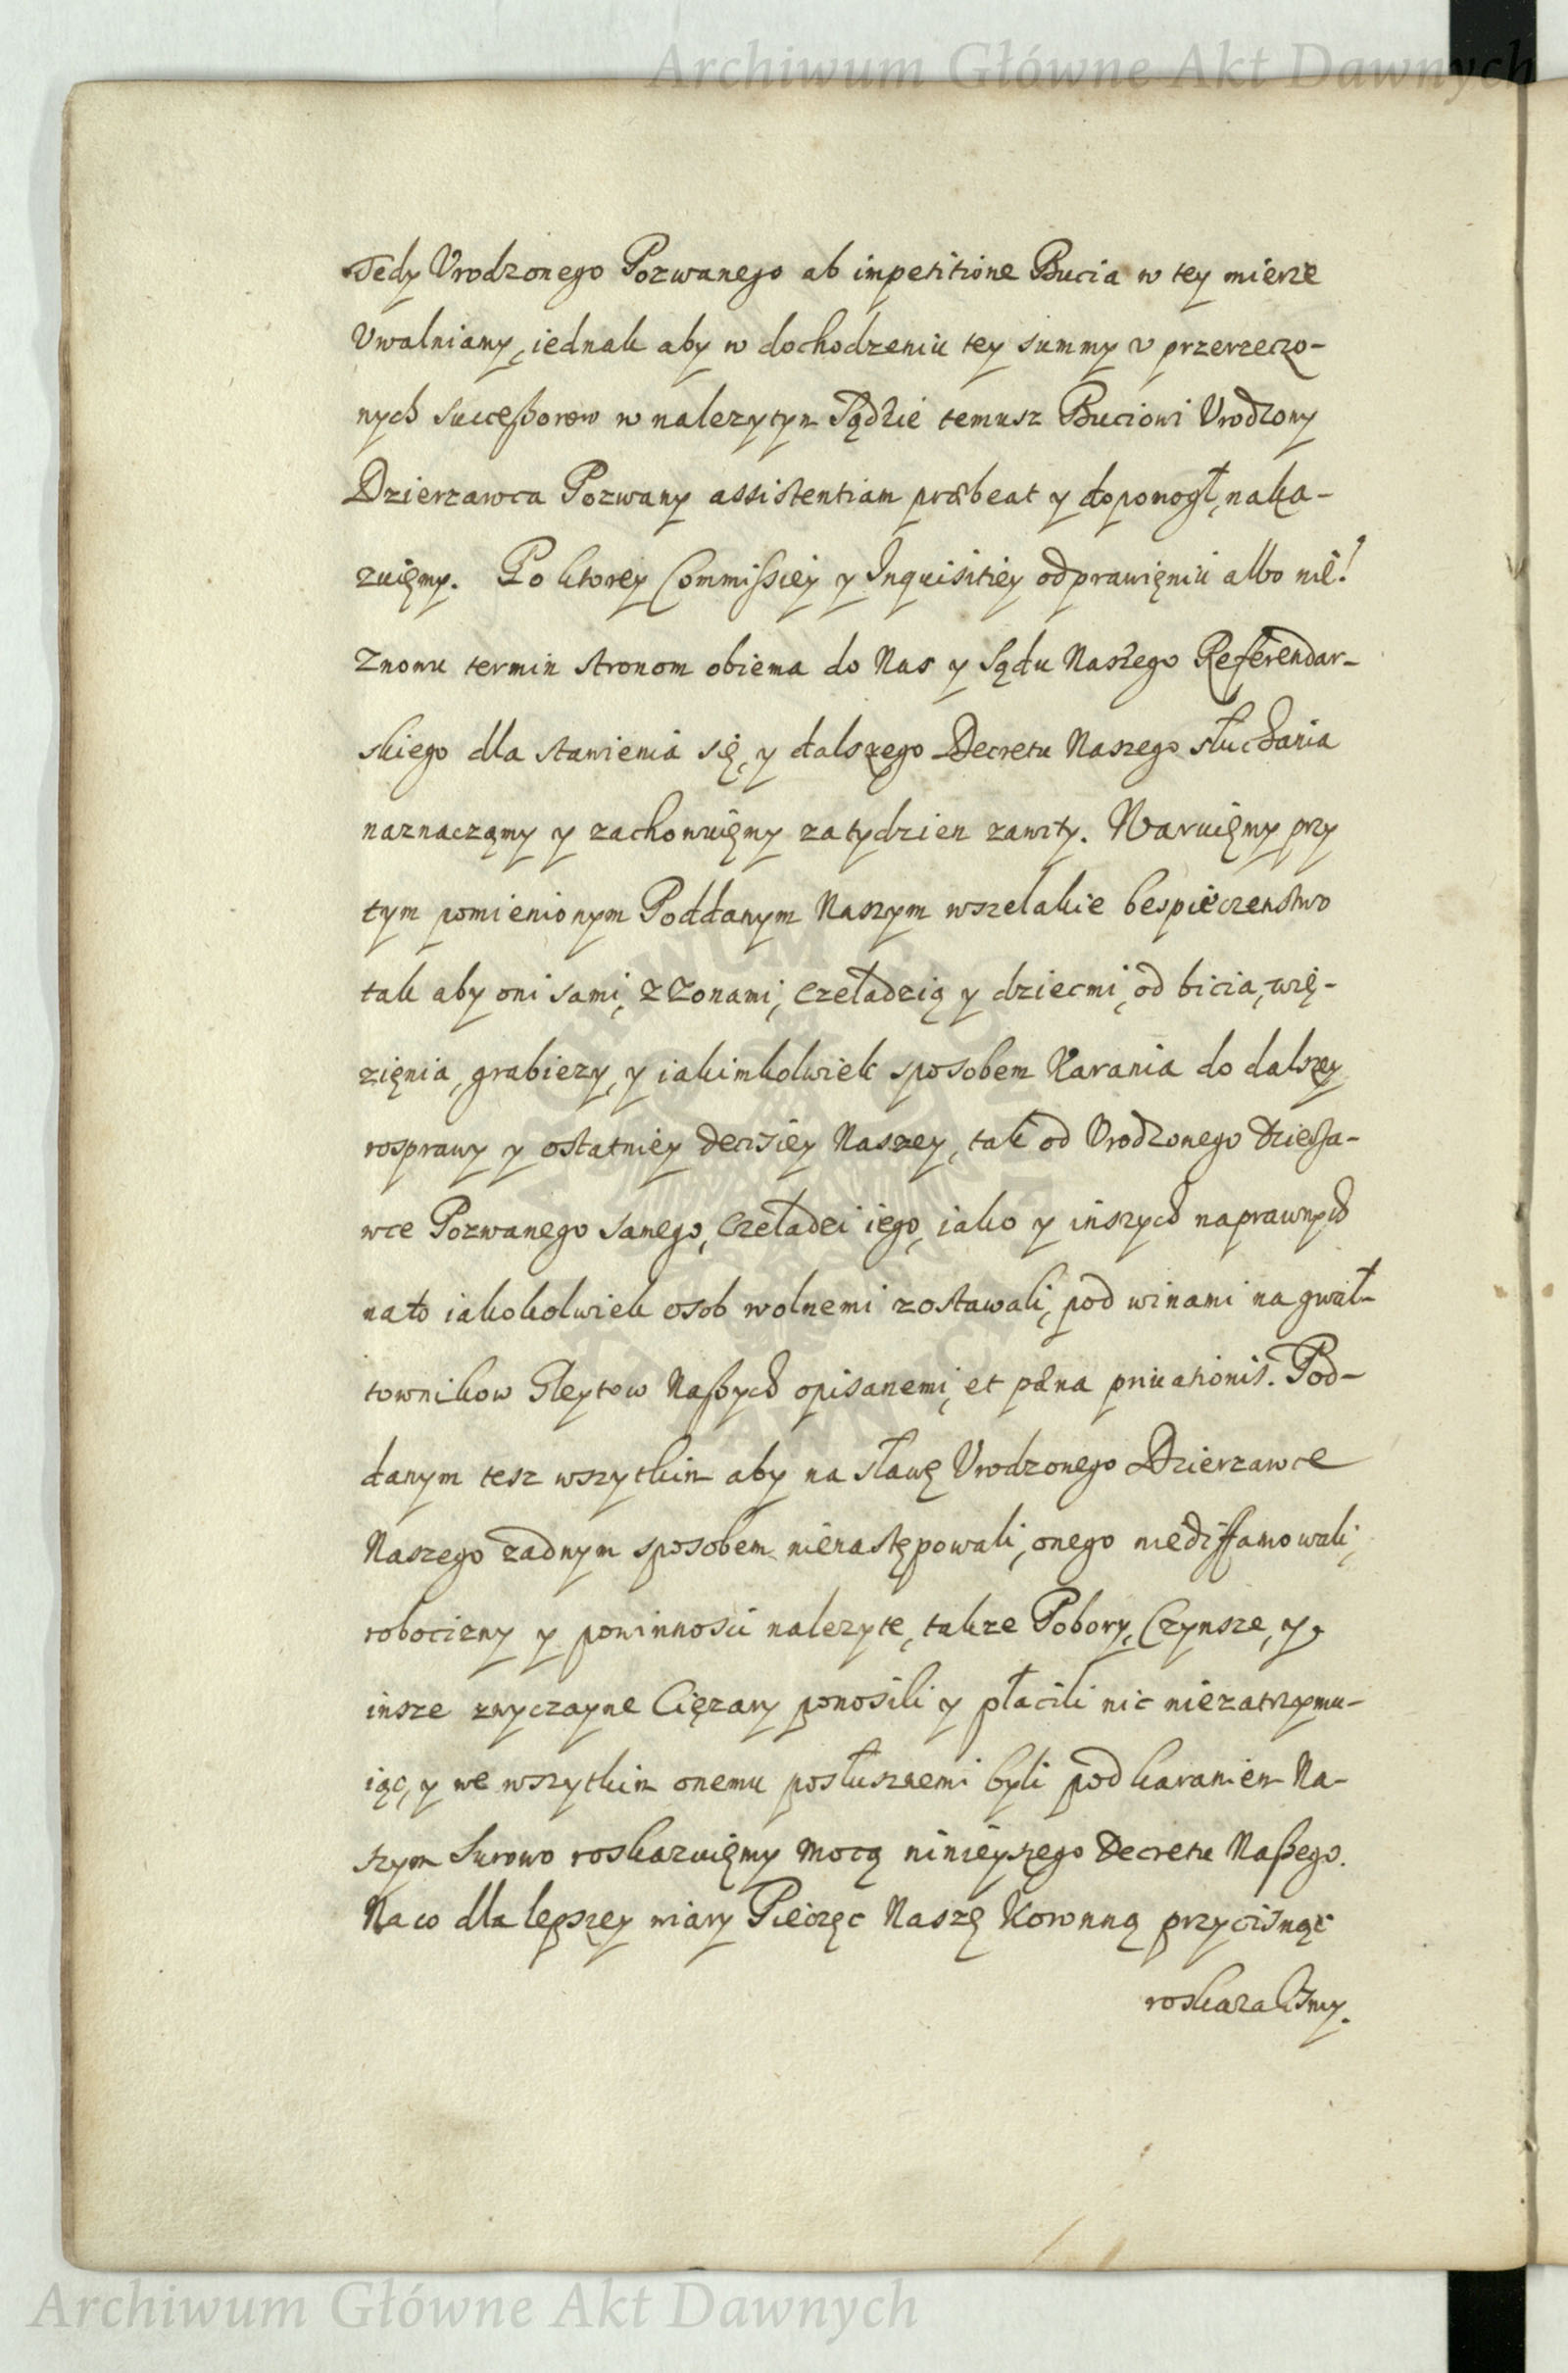 Archiwum Główne Akt Dawnych
Tedy Vrodzonego Pozwanego ab impetitione Bucia w tey mierze
Vwalniamy, iednak aby w dochodzeniu tey summy v przerzeczo-
nych Successorow w nalezytym Sądzie temusz Buciowi Vrodzony
Dzierzawca Pozwany assistentiam præbeat y dopomogł, naka-
zuięmy. Po ktorey Commissiey y Inquisitiey odprawięniu albo nie!
Znowu termin stronom obiema do Nas y Sądu Naszego Referendar-
skiego dla stawienia się, y dalszego Decretu Naszego słuchania
naznaczamy y zachowuięmy za tydzien zawity. Waruięmy przy
tym pomienionym Poddanym Naszym wszelakie bespieczenstwo
tak aby oni sami, z Zonami, Czeladzią y dziecmi, od bicia, wię-
zięnia, grabiezy, y iakimkolwiek sposobem Karania do dalszey
rosprawy y ostatniey decisiey Naszey, tak od Vrodzonego Dzierza-
wce Pozwanego samego, Czeladzi iego, iako y inszych naprawnych
na to iakokolwiek osob wolnemi zostawali, pod winami na gwał-
townikow Gleytow Naszych opisanemi, et pæna priuationis. Pod-
danym tesz wszytkim aby na sławę Vrodzonego Dzierzawce
Naszego zadnym sposobem nienastępowali, onego niediffamowali,
robocizny y powinnosci nalezyte, takze Pobory, Czynsze, y
insze zwyczayne Cięzary ponosili y płacili nic niezatrzymu-
iąc, y we wszytkim onemu posłusznemi byli pod karaniem Na-
szym Surowo roskazuięmy mocą ninieyszego Decretu Naszego.
Na co dla lepszey wiary Pieczęc Naszę Koronną przycisnąc
roskazalismy.
Archiwum Główne Akt Dawnych